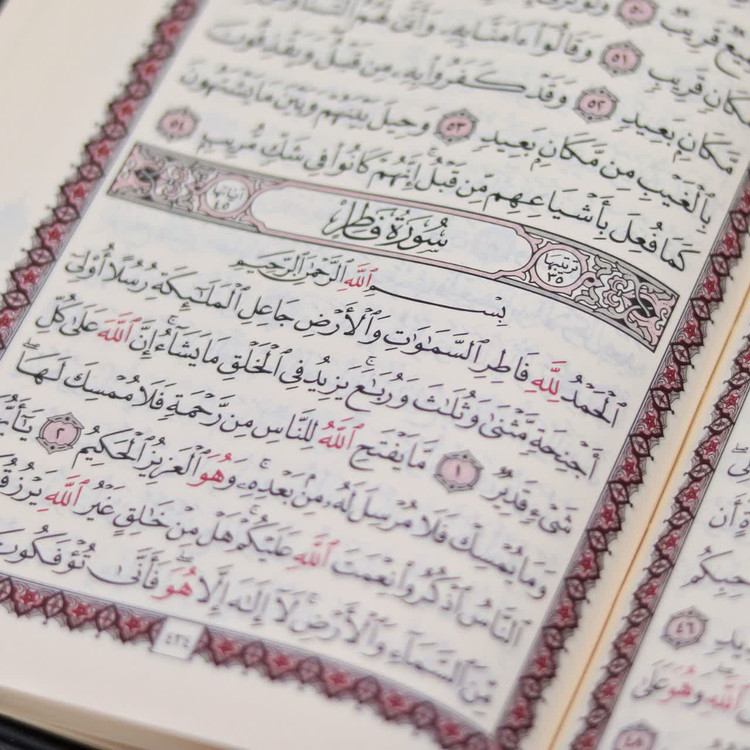 قريب ٥٠
مكان قريب ٥١ وقالوا ءامنا به وأنى لهم التناوش
مكان بعيد ٥٢ وقد كفروا به من قبل ويقذفون
بالغيب من مكان بعيد ٥٣ وحيل بينهم وبين ما يشتهون
كما فعل بأشياعهم من قبل إنهم كانوا في شك مريب ٥٤
ترتيبها ٣٥ سُورَةُ فَاطِرٍ آياتها ٤٥
بِسْمِ ٱللَّهِ ٱلرَّحْمَٰنِ ٱلرَّحِيمِ
ٱلْحَمْدُ لِلَّهِ فَاطِرِ ٱلسَّمَٰوَٰتِ وَٱلْأَرْضِ جَاعِلِ ٱلْمَلَٰٓئِكَةِ رُسُلًا أُو۟لِىٓ
أَجْنِحَةٍ مَّثْنَىٰ وَثُلَٰثَ وَرُبَٰعَ ۚ يَزِيدُ فِى ٱلْخَلْقِ مَا يَشَآءُ ۚ إِنَّ ٱللَّهَ عَلَىٰ كُلِّ
شَىْءٍ قَدِيرٌ ١ مَّا يَفْتَحِ ٱللَّهُ لِلنَّاسِ مِن رَّحْمَةٍ فَلَا مُمْسِكَ لَهَا ۖ
وَمَا يُمْسِكْ فَلَا مُرْسِلَ لَهُۥ مِنۢ بَعْدِهِۦ ۚ وَهُوَ ٱلْعَزِيزُ ٱلْحَكِيمُ ٢ يَٰٓأَيُّ
ٱلنَّاسُ ٱذْكُرُوا۟ نِعْمَتَ ٱللَّهِ عَلَيْكُمْ ۚ هَلْ مِنْ خَٰلِقٍ غَيْرُ ٱللَّهِ يَرْزُقُ
مِّنَ ٱلسَّمَآءِ وَٱلْأَرْضِ ۚ لَآ إِلَٰهَ إِلَّا هُوَ ۖ فَأَنَّىٰ تُؤْفَكُونَ
٤٣٤
وأن
٤٦
الله وهو على